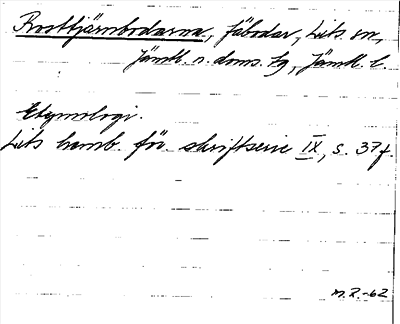 Rosttjärnbodarna, fäbodar, Lits sn,
Jämtl. n. doms. tg, Jämtl. l.
Etymologi.
Lits hemb. för. skriftserie IX, s. 37 f.
M.R.-62